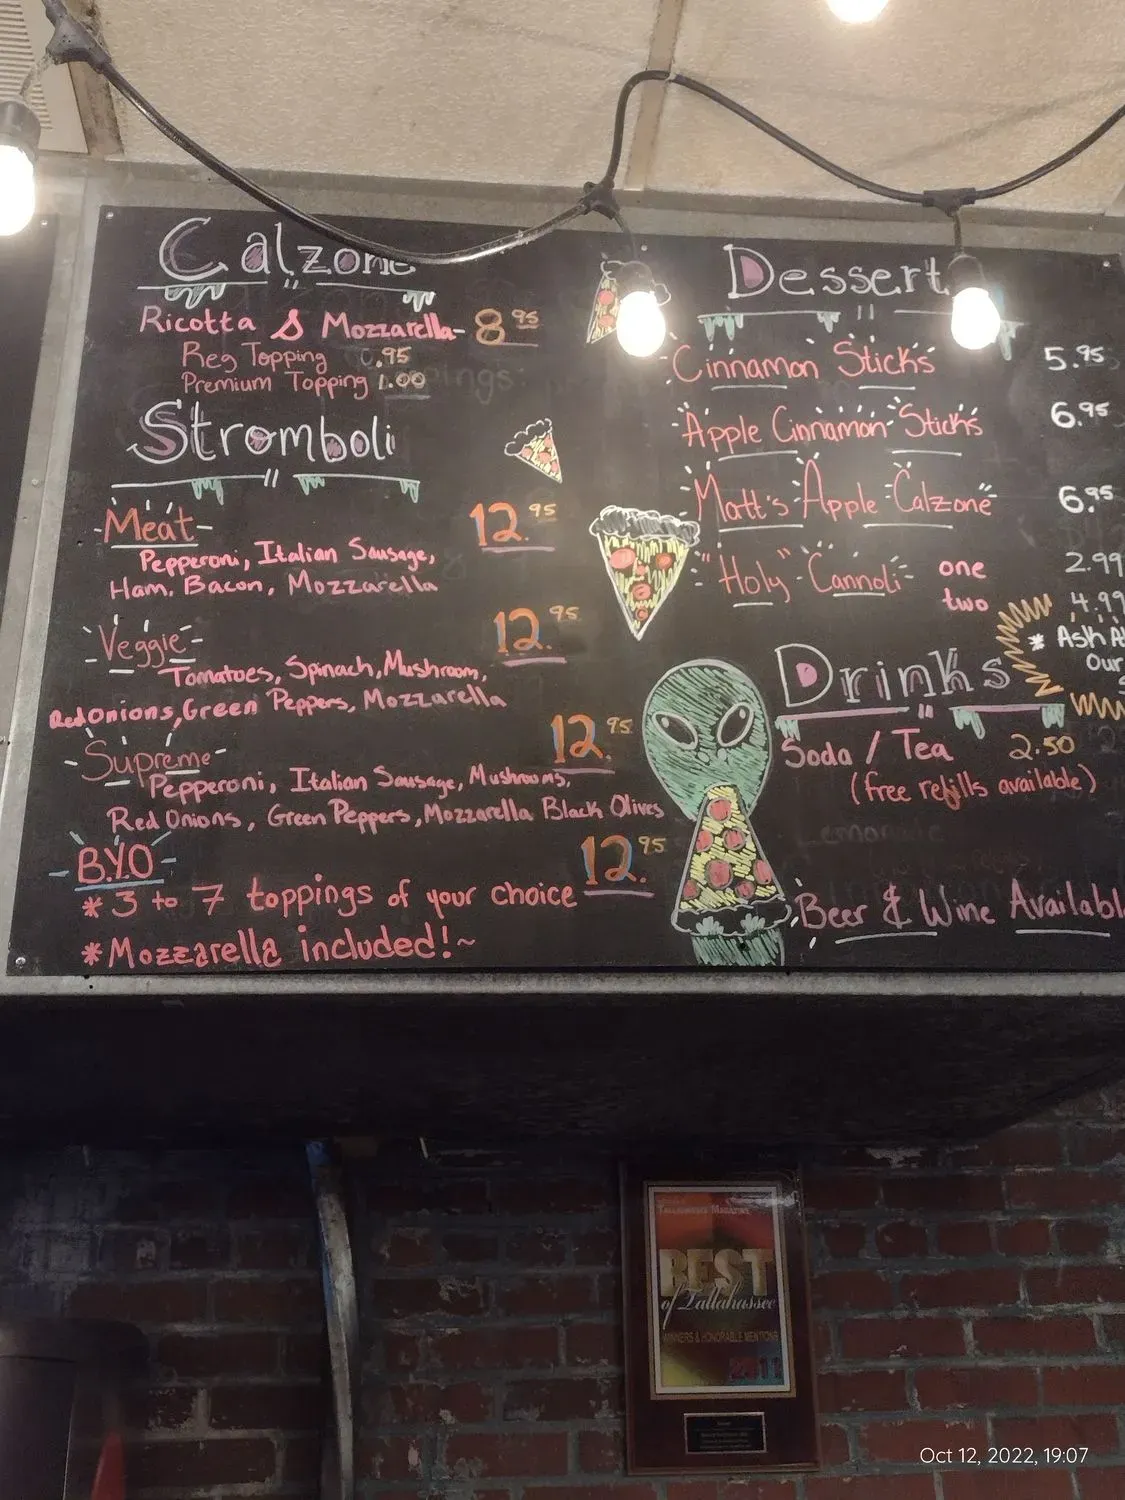 Calzone
Ricotta & Mozzarella- 8.95
Reg Topping .95
Premium Topping 1.00
Stromboli
Meat 12.95
Pepperoni, Italian Sausage,
Ham, Bacon, Mozzarella
Veggie 12.95
Tomatoes, Spinach, Mushroom,
Red Onions, Green Peppers, Mozzarella
Supreme 12.95
Pepperoni, Italian Sausage, Mushrooms,
Red Onions, Green Peppers, Mozzarella Black Olives
B.Y.O 12.95
*3 to 7 toppings of your choice
*Mozzarella included!~
Dessert
Cinnamon Sticks 5.95
Apple Cinnamon Sticks 6.95
Matt's Apple Calzone 6.95
"Holy" Cannoli one 2.99
two 4.99
* Ask A
Our
Drinks
Soda / Tea 2.50
(free refills available)
Beer & Wine Availabl
TALLAHASSEE MAGAZINE
BEST
of Tallahassee
WINNERS & HONORABLE MENTIONS
2011
Oct 12, 2022, 19:07